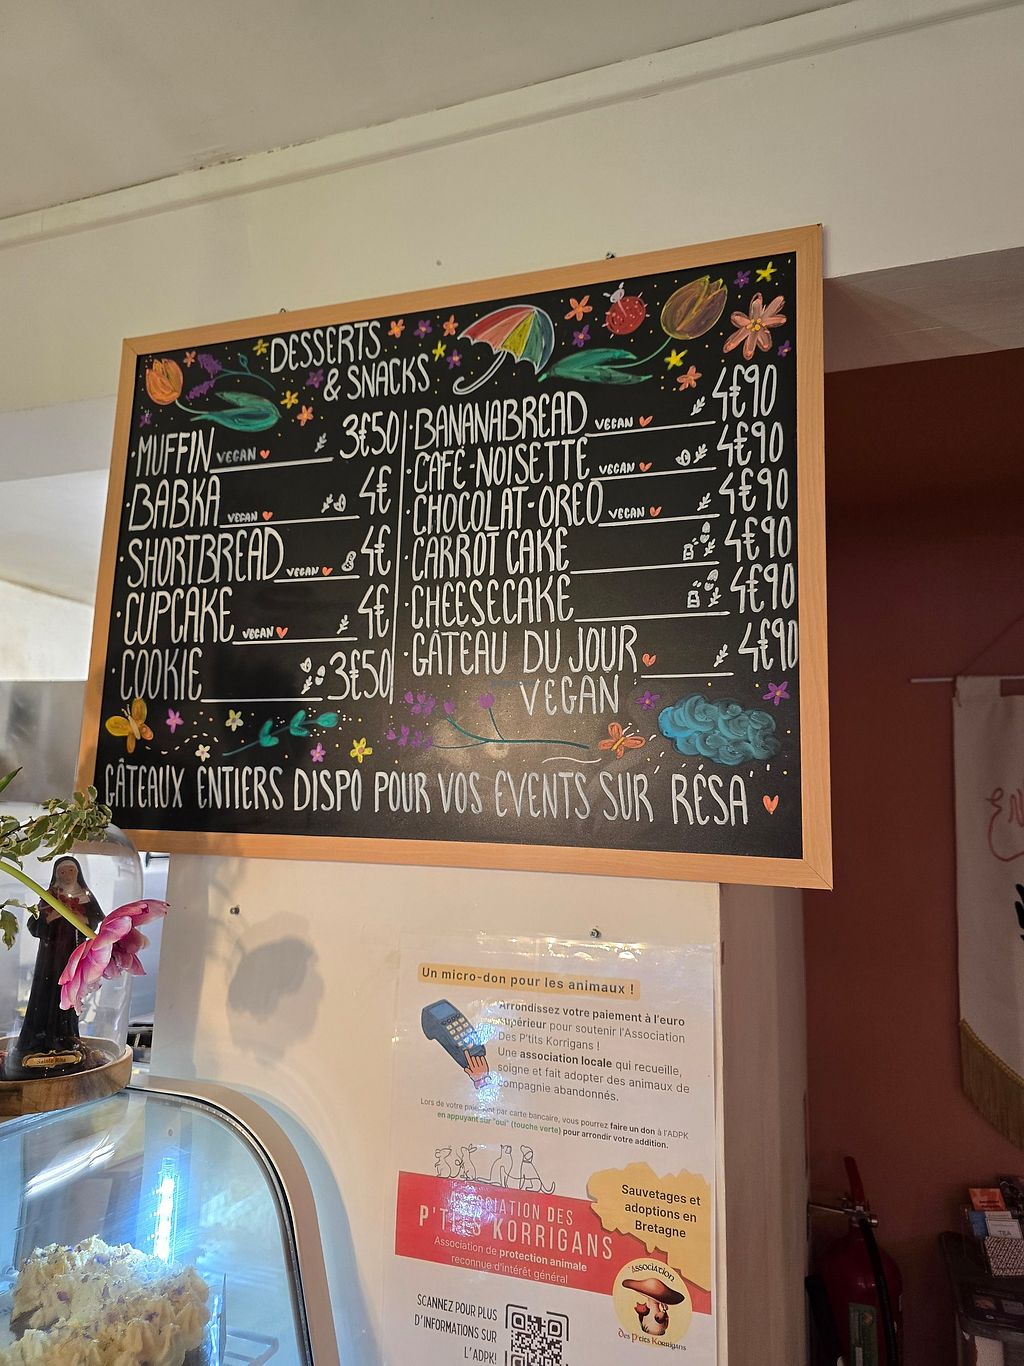 DESSERTS
& SNACKS
·MUFFIN VEGAN 3€50
·BABKA VEGAN 4€
·SHORTBREAD VEGAN 4€
·CUPCAKE VEGAN 4€
·COOKIE 3€50
·BANANABREAD VEGAN 4€90
·CAFÉ-NOISETTE VEGAN 4€90
·CHOCOLAT-OREO VEGAN 4€90
·CARROT CAKE 4€90
·CHEESECAKE 4€90
·GÂTEAU DU JOUR 4€90
VEGAN
GÂTEAUX ENTIERS DISPO POUR VOS EVENTS SUR RÉSA
Un micro-don pour les animaux !
Arrondissez votre paiement à l'euro
supérieur pour soutenir l'Association
Des P'tits Korrigans !
Une association locale qui recueille,
soigne et fait adopter des animaux de
compagnie abandonnés.
Lors de votre paiement par carte bancaire, vous pourrez faire un don à l'ADPK
en appuyant sur "oui" (touche verte) pour arrondir votre addition.
ASSOCIATION DES
P'TITS KORRIGANS
Association de protection animale
reconnue d'intérêt général
Sauvetages et
adoptions en
Bretagne
Association
Des P'tits Korrigans
SCANNEZ POUR PLUS
D'INFORMATIONS SUR
L'ADPK!
Sainte Rita
TEA